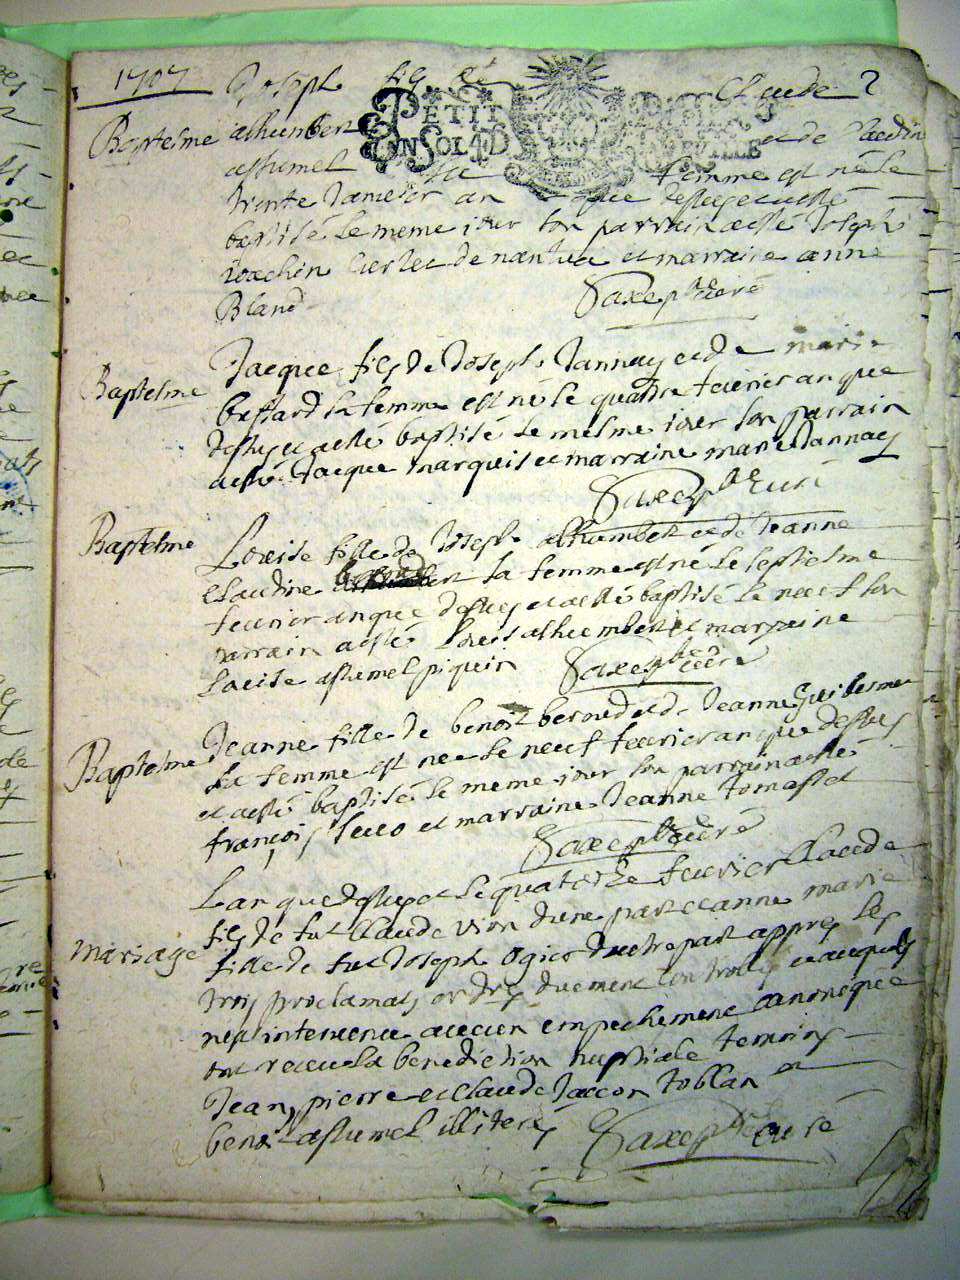 1707
Joseph fils de Claude
PETIT
UN SOL 4 D
Baptesme
alhumbert et de Claudin
assumel sa femme est né le
trente Janvier an que dessus et a esté
baptisé le meme iour son parrain a esté Joseph
ioachin de nantua et marraine anne
Bland
Saxe pbtre curé
Baptesme
Jacque fils de Joseph Jannay et de marie
bastard sa femme est né le quatre feurier an que
dessus et a esté baptisé le mesme iour son parrain
a esté Jacque marquis et marraine marie Jannay
Saxe pbtre curé
Baptesme
Louise fille de Joseph alhumbert et de Jeanne
Claudine sa femme est né le septiesme
feurier an que dessus et a esté baptisé le neuf son
parrain a esté Louis alhumbert et marraine
Louise assumel piquin
Saxe pbtre curé
Baptesme
Jeanne fille de benoit bernod et de Jeanne Guillerme
sa femme est nee le neuf feurier an que dessus
et a esté baptisé le meme iour son parrain a esté
françois et marraine Jeanne tomasset
Saxe pbtre curé
Mariage
L an que dessus et le quatorze feurier Claude
fils de fut Claude vion d une part et anne marie
fille de fut Joseph ogier d autre part appres les
trois proclamats ordres duement controlles et auquels
n est intervenu aucun empechement canonique
ont receu la benediction nuptiale temoins
Jean, pierre et Claude Jaccon toblan et
benoit assumel illiterés
Saxe pbtre curé